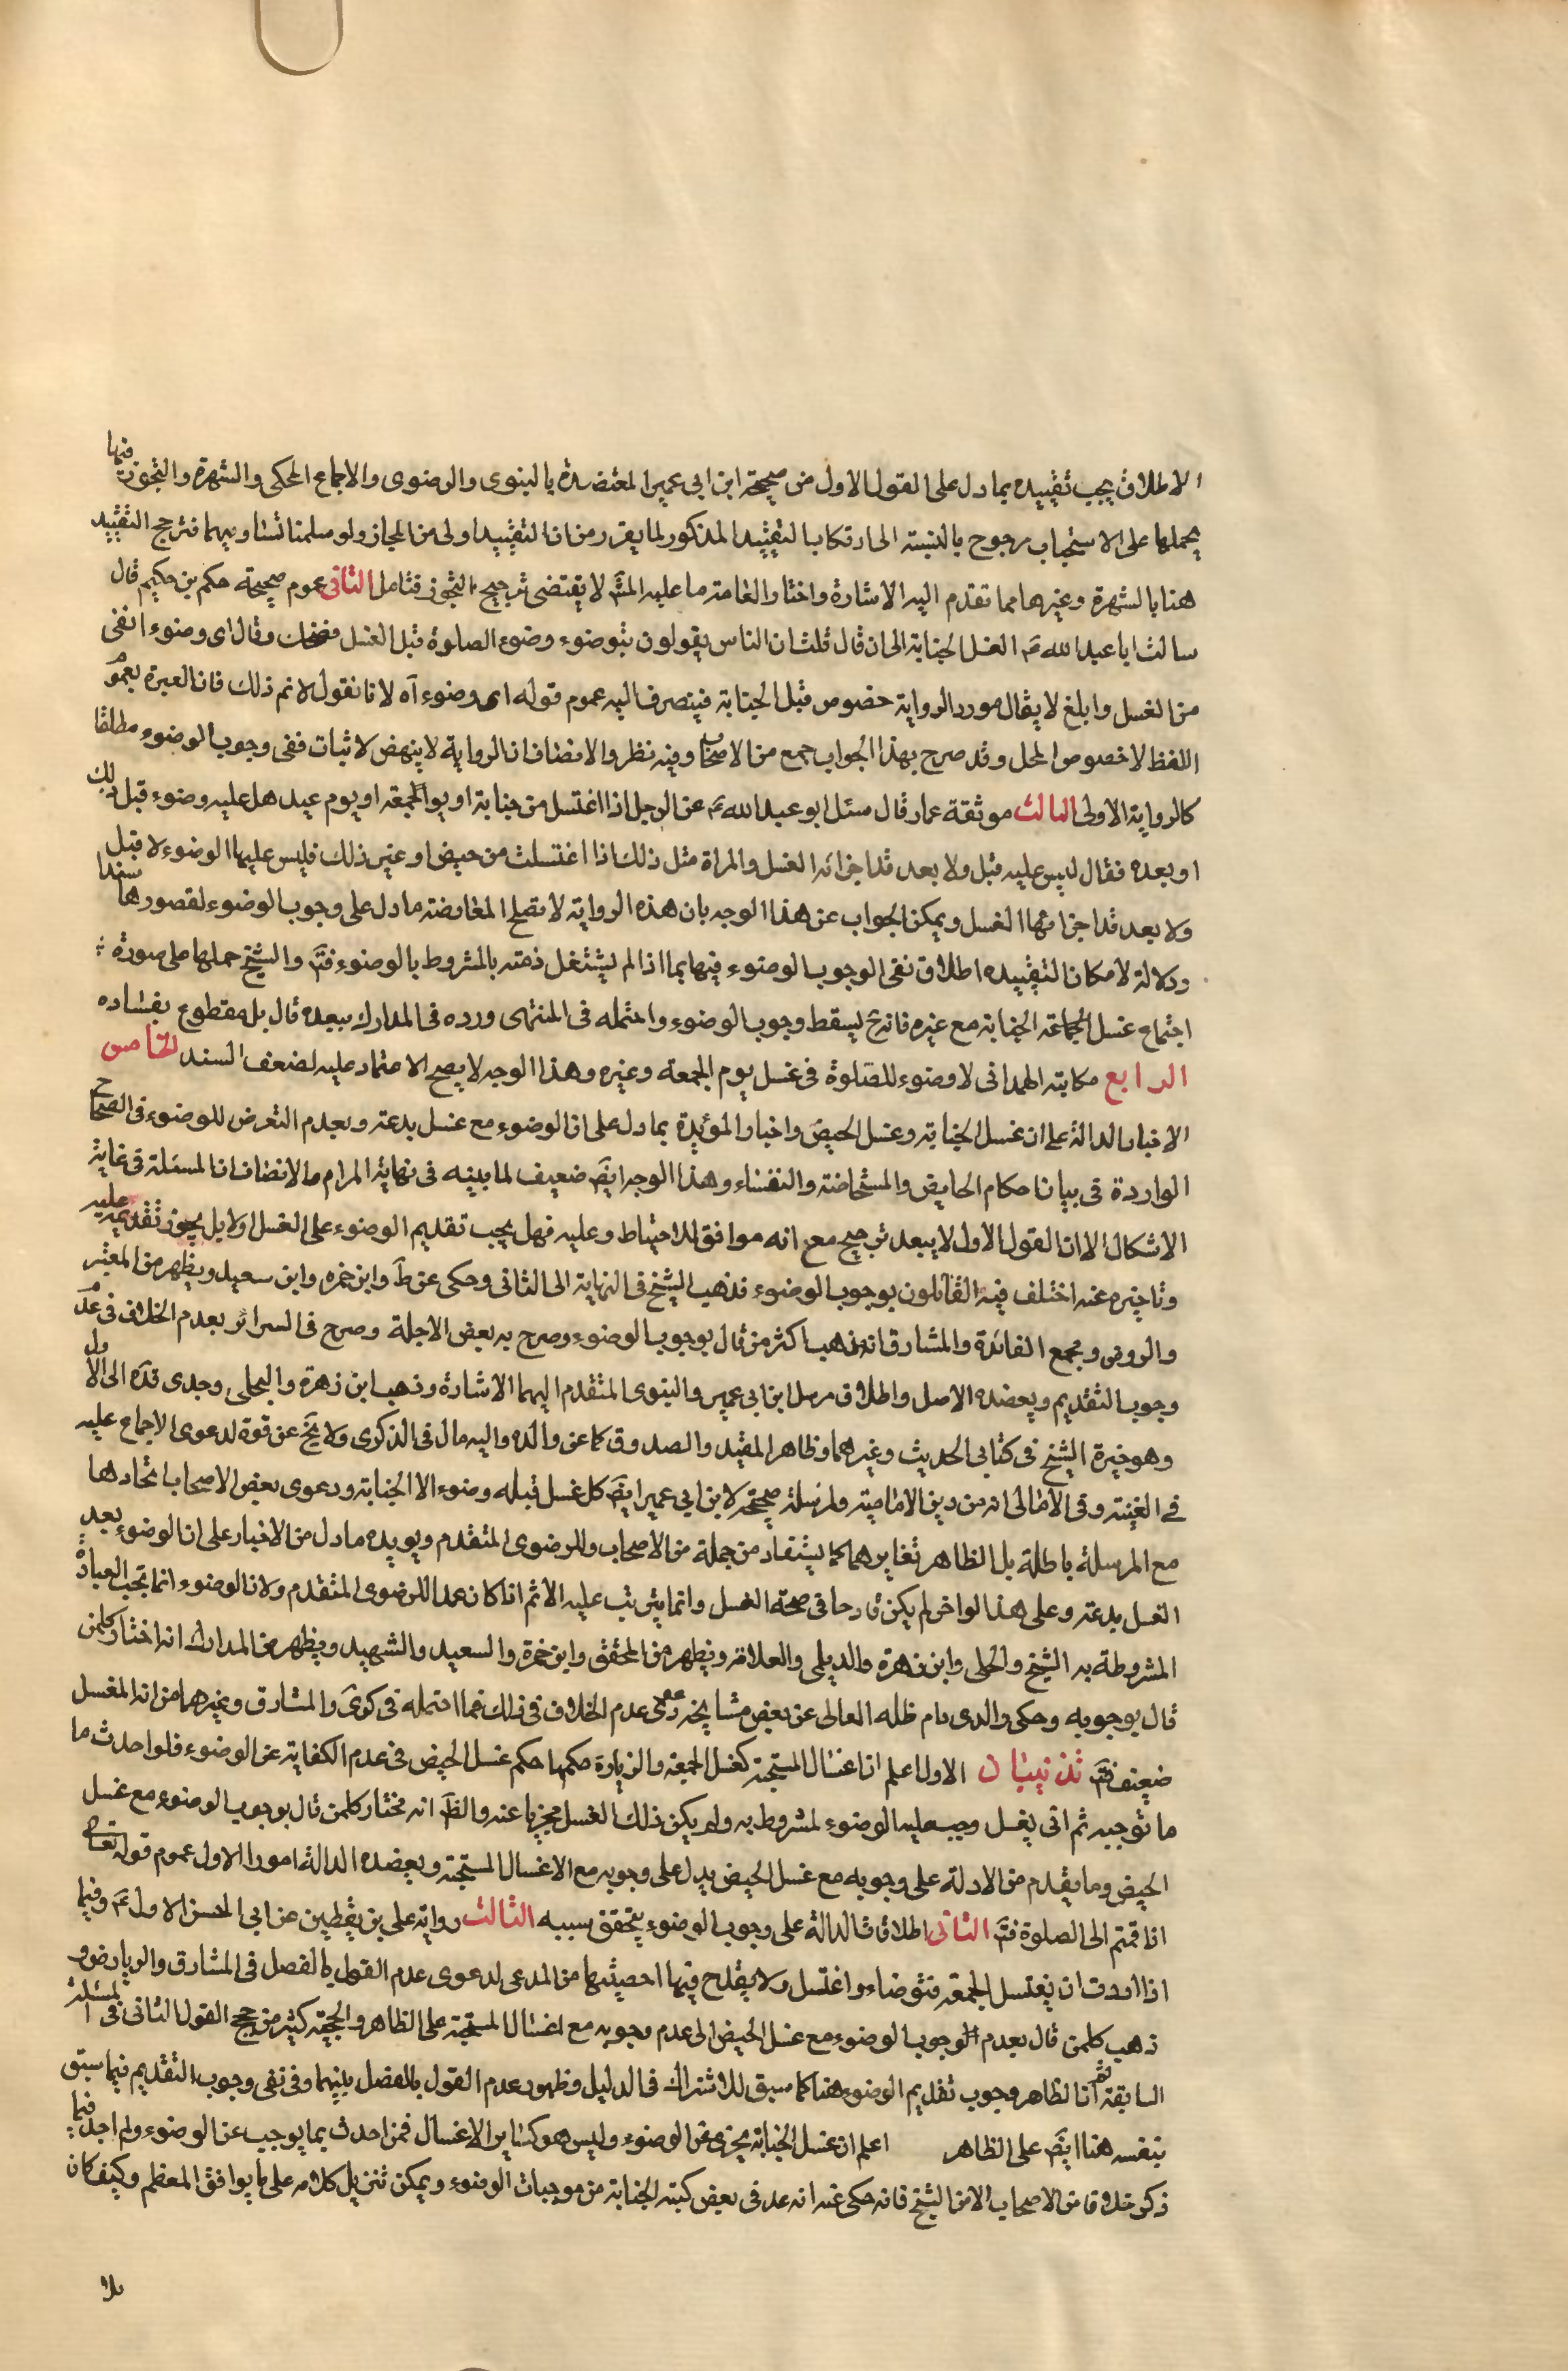 الاطلاق يجب تقييده بما دل على القول الاول من صحيحة ابن ابي عمير المعتضدة بالنبوى والرضوى والاجماع المحكى والشهرة والتجوز فيها
بحملها على الاستحباب مرجوح بالنسبة الى ارتكاب التقييد المذكور لما يقرر من ان التقييد اولى من المجاز ولو سلمنا تساويهما فترجح التقييد
هنا بالشهرة وغيرها مما تقدم اليه الاشارة واختار العامة ما عليه المش لا يقتضى ترجيح التجوز فتامل الثانى عموم صحيحة حكم بن حكيم قال
سالت ابا عبد الله ع‍ الغسل الجنابة الى ان قال قلت ان الناس يقولون يتوضوء وضوء الصلوة قبل الغسل فضحك وقال اى وضوء انقى
من الغسل وابلغ لا يقال مورد الرواية خصوص قبل الجنابة فينصرف اليه عموم قوله اى وضوء آه لانا نقول لا نم ذلك فان العبرة بعموم
اللفظ لا خصوص المحل وقد صرح بهذا الجواب جمع من الاصحاب وفيه نظر والانصاف ان الرواية لا ينهض لاثبات نفى وجوب الوضوء مطلقا
كالرواية الاولى الثالث موثقة عمار قال سئل ابو عبد الله ع‍ عن الرجل اذا اغتسل من جنابة او يوم الجمعة او يوم عيد هل عليه وضوء قبل ذلك
او بعده فقال ليس عليه قبل ولا بعد قد اجزائه الغسل والمراة مثل ذلك اذا اغتسلت من حيض او غير ذلك فليس عليها الوضوء لا قبل
ولا بعد قد اجزائها الغسل ويمكن الجواب عن هذا الوجه بان هذه الرواية لا تصلح لمعارضة ما دل على وجوب الوضوء لقصورها سندا
ودلالة لامكان التقييده اطلاق نفى الوجوب الوضوء فيها بما اذا لم يشتغل ذمته بالمشروط بالوضوء فت‍ والشيخ حملها على صورة
اجتماع غسل الجماعة الجنابة مع غيره فانه ح يسقط وجوب الوضوء واحتمله فى المنتهى ورده فى المدارك ببعده قال بل مقطوع بفساده
الرابع مكاتبة الهمدانى لا وضوء للصلوة فى غسل يوم الجمعة وغيره وهذا الوجه لا يصح الاعتماد عليه لضعف السند الخامس
الاخبار الدالة على ان غسل الجنابة وغسل الحيض واخبار المؤيدة بما دل على ان الوضوء مع غسل بدعة وبعدم التعرض للوضوء فى الصحاح
الواردة فى بيان احكام الحايض والمستحاضة والنفساء وهذا الوجه ايض ضعيف لما بينه فى نهاية المرام والانصاف ان المسئلة فى غاية
الاشكال الا ان القول الاول لا يبعد ترجيح مع انه موافق للاحتياط وعليه فهل يجب تقديم الوضوء على الغسل او لا بل يجوز تقديمه عليه
وتاخيره عنه اختلف فيه القائلون بوجوب الوضوء فذهب الشيخ فى النهاية الى الثانى وحكى عن ط وابن حمزه وابن سعيد ويظهر من المعتبر
والروض ومجمع الفائدة والمشارق انه ذهب اكثر من قال بوجوب الوضوء وصرح به بعض الاجلة وصرح فى السرائر بعدم الخلاف فى عدم
وجوب التقديم ويعضده الاصل واطلاق مرسل ابن ابى عمير والنبوى المتقدم اليهما الاشارة وذهب ابن زهرة والحلى وجدى قده الى الاول
وهو خيرة الشيخ فى كتابى الحديث وغيرهما وظاهر المفيد والصدوق كما عن والده واليه مال فى الذكرى ولا يخ عن قوة لدعوى الاجماع عليه
فى الغنية وفى الامالى انه من دين الامامية ولمرسلة صحيحة لابن ابى عمير ايض كل غسل قبله وضوء الا الجنابة ودعوى بعض الاصحاب اتحادها
مع المرسلة باطلة بل الظاهر تغايرهما كما يستفاد من جملة من الاصحاب والرضوى المتقدم ويويده ما دل من الاخبار على ان الوضوء بعد
الغسل بدعة وعلى هذا لو اخر لم يكن قادحا فى صحة الغسل وانما يترتب عليه الاثم اذا كان عمدا للرضوى المتقدم ولان الوضوء انما تجب العبادة
المشروطة به الشيخ والحلى وابن زهرة والديلمى والعلامة ويظهر من المحقق وابن حمزة والسعيد والشهيد ويظهر من المدارك انه اختار كل من
قال بوجوبه وحكى والدى دام ظله العالى عن بعض مشايخه دعوى عدم الخلاف فى ذلك فما احتمله فى كرى والمشارق وغيرهما من انه المغسل
ضعيف فت‍ تذنيبان الاول اعلم ان اغسال المستحبة كغسل الجمعة والزيارة حكمها حكم غسل الحيض فى عدم الكفاية عن الوضوء فلو احدث ما
ما توجبه ثم اتى بغسل وجب عليه الوضوء لمشروط به ولم يكن ذلك الغسل مجزيا عنه والظ انه مختار كل من قال بوجوب الوضوء مع غسل
الحيض وما يقدم من الادلة على وجوبه مع غسل الحيض يدل على وجوبه مع الاغسال المستحبة ويعضده الدالة امور الاول عموم قوله تعالى
اذا قمتم الى الصلوة فت‍ الثانى اطلاقات الدالة على وجوب الوضوء بتحقق سببه الثالث رواية على بن يقطين عن ابى الحسن الاول ع‍ وفيها
اذا اردت ان تغتسل للجمعة فتوضاء واغتسل ولا يقدح فيها اخصيتها من المدعى لدعوى عدم القول بالفصل فى المشارق والرياض و
ذهب كل من قال بعدم الوجوب الوضوء مع غسل الحيض الى عدم وجوبه مع اغسال المستحبة على الظاهر والحجة كثير من حجج القول الثانى فى المسئلة
السابقة ثم ان الظاهر وجوب تقديم الوضوء هنا كما سبق للاشتراك فى الدليل وظهور عدم القول بالفصل بينهما وفى نفى وجوب التقديم فيما سبق
بنفسه هنا ايض على الظاهر اعلم ان غسل الجنابة يجزى عن الوضوء وليس هو كساير الاغسال فمن احدث بما يوجب عن الوضوء ولم اجد فيها
ذكر خلافا من الاصحاب الا من الشيخ فانه حكى عنه انه عد فى بعض كتبه الجنابة من موجبات الوضوء ويمكن تنزيل كلامه على ما يوافق المعظم وكيف كان